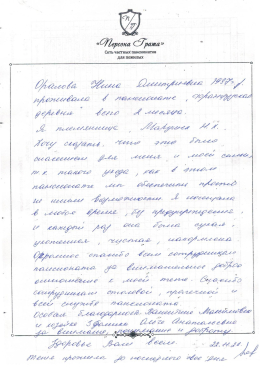 «Персона Грата»
Сеть частных пансионатов
для пожилых
Орлова Нина Дмитриевна 1937 г.р.
проживала в пансионате,
деревня всего 2 месяца.
Я племянница,
Хочу сказать, что это было
спасением для меня и моей семьи,
т.к. такого ухода, как в этом
пансионате мы обеспечить просто
не имели возможности. Я посещала
в любое время, без предупреждения
и каждый раз она была сухая,
ухоженная, чистая, накормлена
Огромное спасибо всем сотрудникам
пансионата за внимательное доброе
отношение к моей тете. Спасибо
сотрудникам столовой, прачечной и
всей службе пансионата
Особая благодарность Валентине
и Олесе Анатольевне
за внимание, и доброту
Здоровья Вам всем.